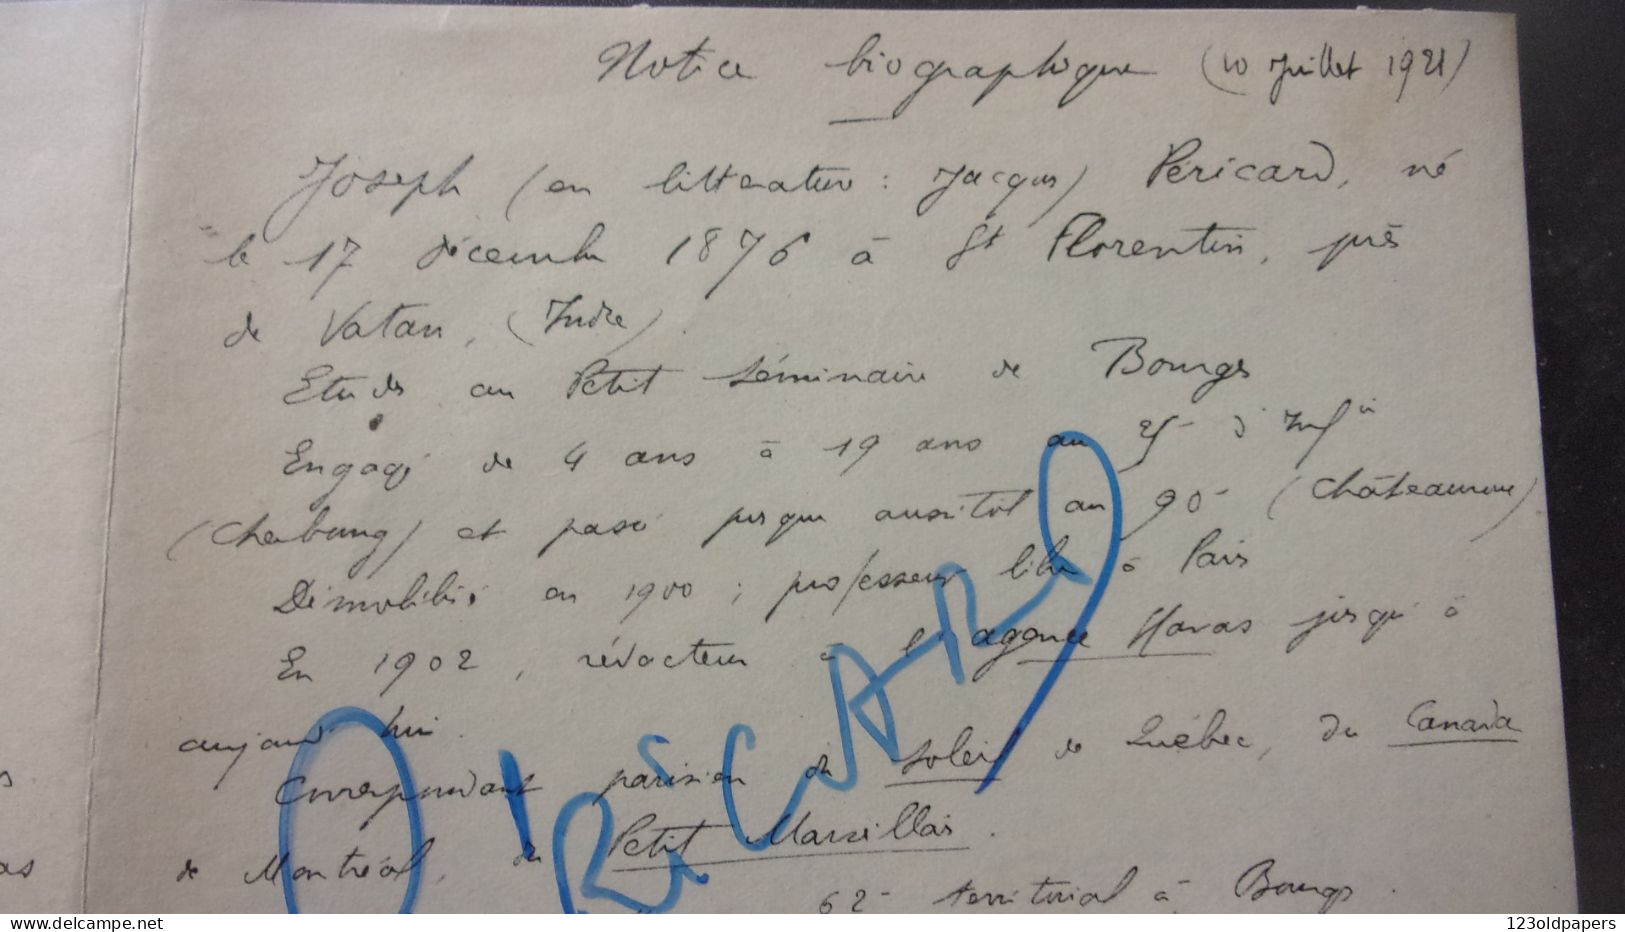 Notice biographique (10 Juillet 1921)
Joseph (en littérature : Jacques) Péricard, né
le 17 décembre 1876 à St Florentin, près
de Vatan, (Indre).
Etudes au Petit Séminaire de Bourges
Engagé de 4 ans à 19 ans au 25e d'Infie
(Cherbourg) et passé presque aussitôt au 90e (Châteauroux)
Démobilisé en 1900 ; professeur libre à Paris
En 1902, rédacteur à l'agence Havas jusqu'à
aujourd'hui.
Correspondant parisien du Soleil de Québec, du Canada
de Montréal, du Petit Marseillais.
62e territorial à Bourges.
as
PÉRICARD
123oldpapers